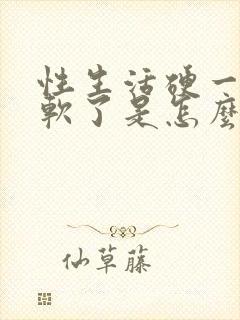 性生活硬一
軟了是怎麼
仙草藤